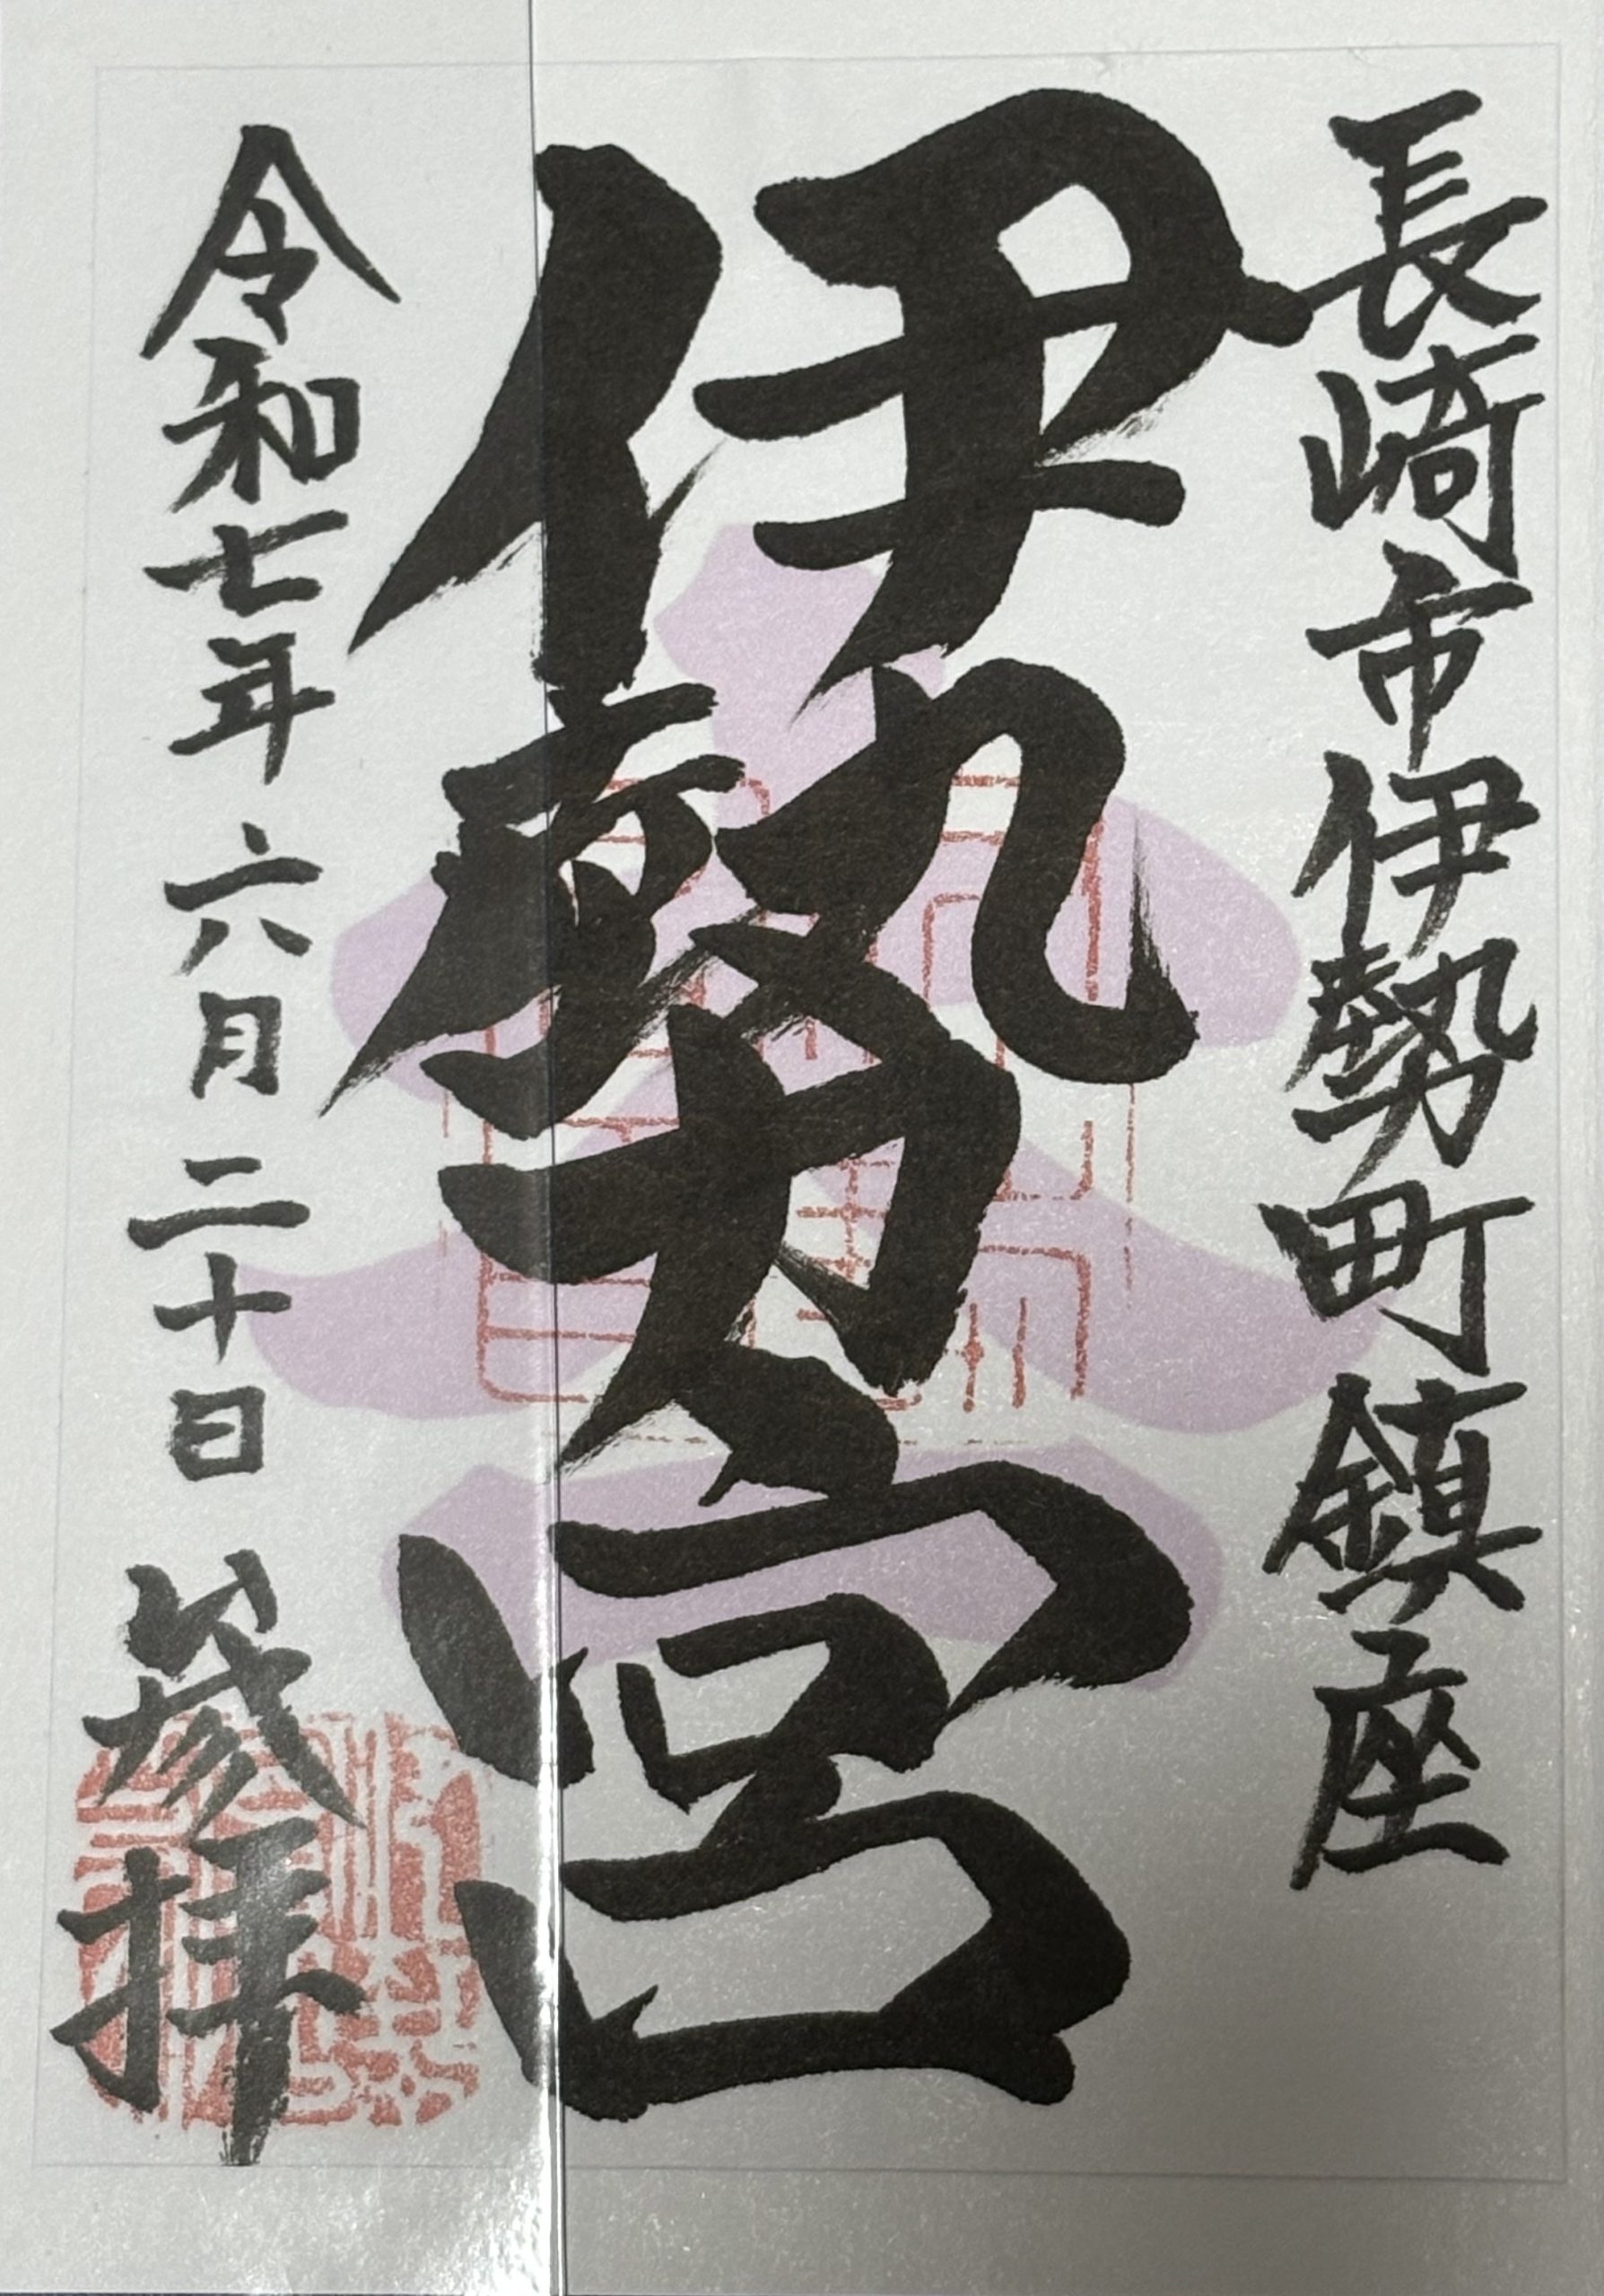 長崎市伊勢町鎮座
伊勢宮
令和七年六月二十日
拝